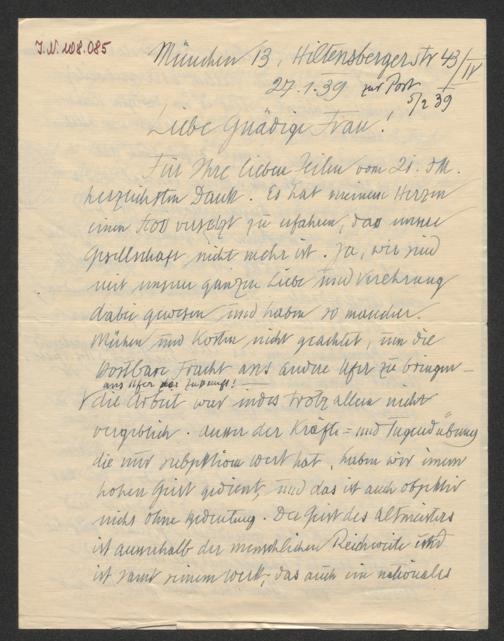 J.N. 108.085
München 13, Hiltensbergerstr 43/IV
27.1.39 zur Post
5/2 39
Liebe Gnädige Frau!
Für Ihre lieben Zeilen vom 21. dM.
herzlichsten Dank. Es hat meinem Herzen
einen Stoß versetzt zu erfahren, daß unsere
Gesellschaft nicht mehr ist. Ja, wir sind
mit unsrer ganzen Liebe und Verehrung
dabei gewesen und haben so mancher
Mühen und Kosten nicht geachtet, um die
kostbare Fracht ans andere Ufer zu bringen –
ans Ufer der Zukunft! –
die Arbeit war indes trotz allem nicht
vergeblich. Ausser der Kräfte= und Tugendübung
die nur subjektiven Wert hat, haben wir einem
hohen Geist gedient, und das ist auch objektiv
nicht ohne Bedeutung. Der Geist des Altmeisters
ist ausserhalb der menschlichen Reichweite und
ist samt seinem Werk, das auch ein nationales